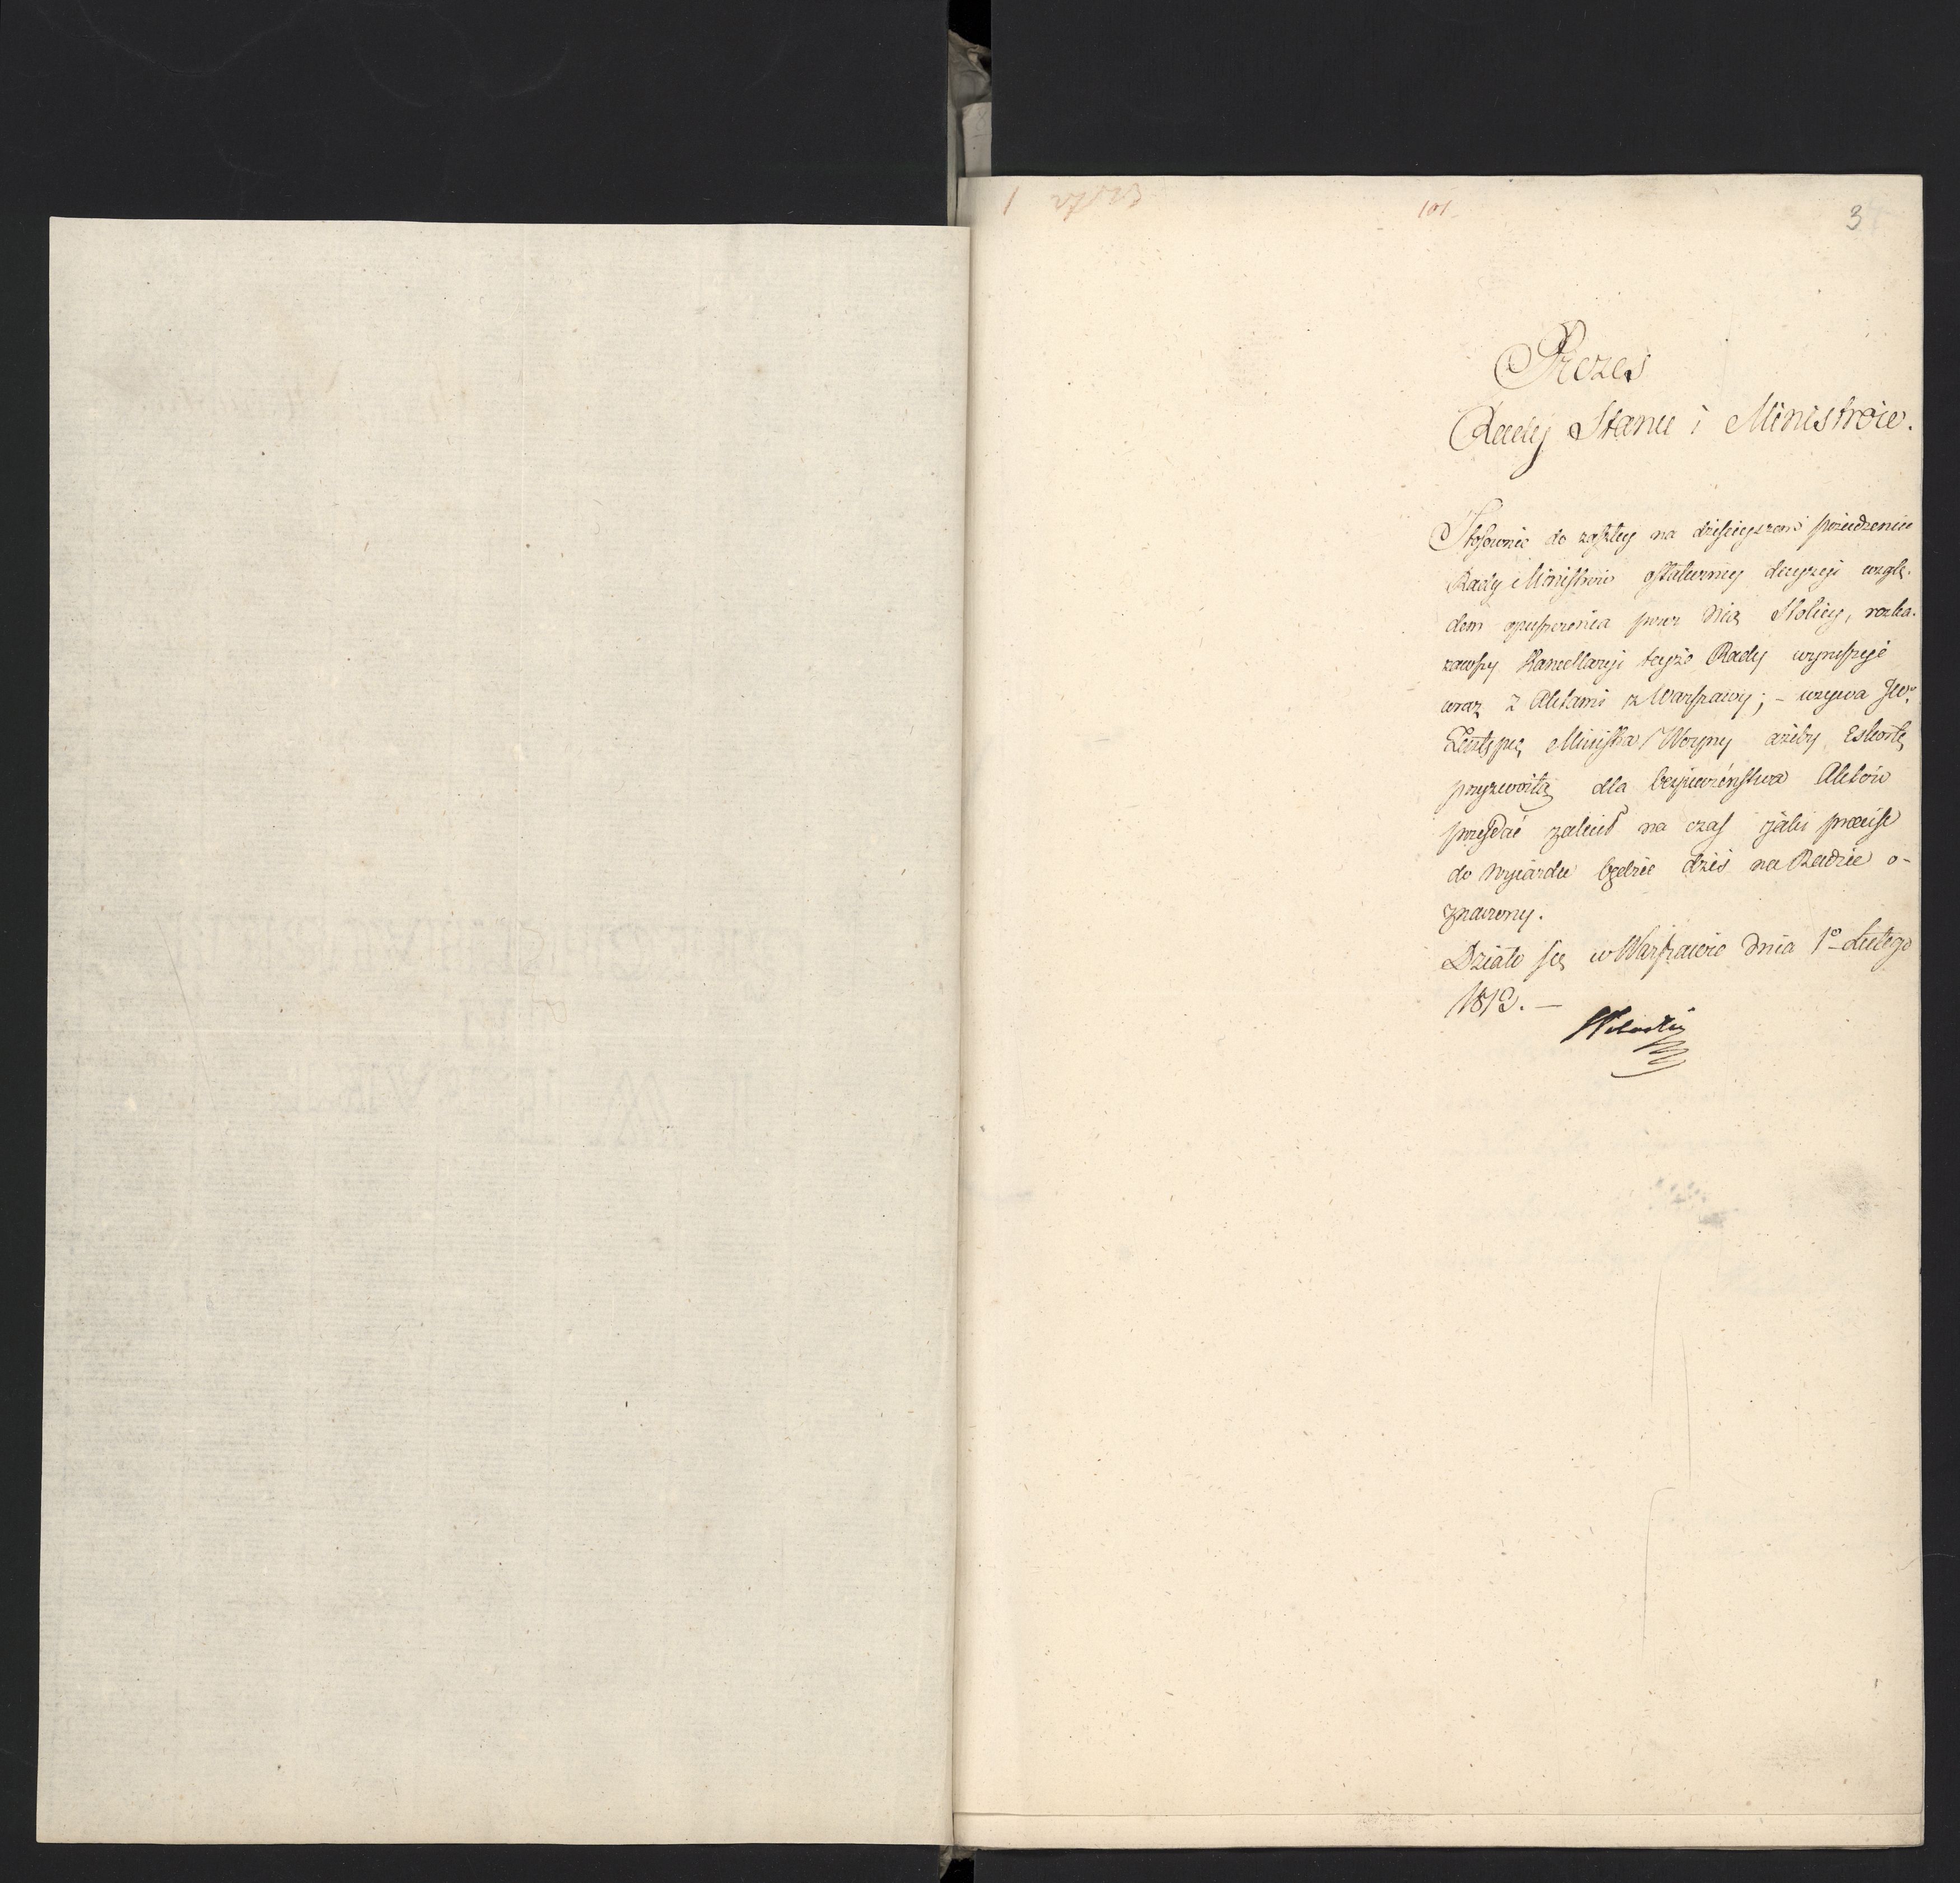 101
3
Prezes
Rady Stanu i Ministrów.
Stosownie do zaszłey na dzisieyszem posiedzeniu
Rady Ministrów ostateczney decyzyi wzglę-
dem opuszczenia przez Nią Stolicy, rozka-
zawszy Kancellaryi teyże Rady wyruszyć
wraz z Aktami z Warszawy; – wzywa JW.
Zastępcę Ministra Woyny ażeby Eskortę
przyzwoitą dla bezpieczeństwa Aktów
przydać zalecił na czas jaki precise
do Wyjazdu będzie dziś na Radzie o-
znaczony.
Działo się w Warszawie dnia 1º Lutego
1813. –